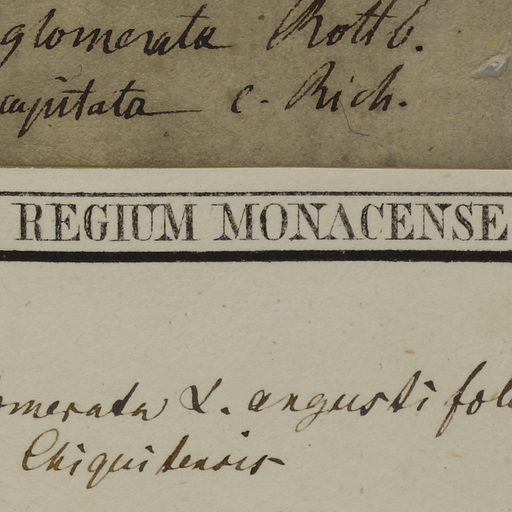 glomerata Rottb.
capitata c. Rich.
REGIUM MONACENSE
omerata L. angustifol
Chiquitensis